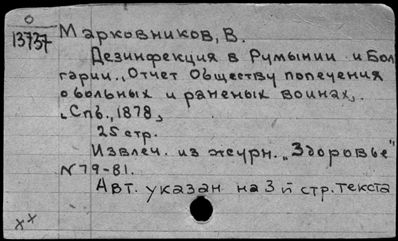 13737
Марковников, В.
Дезинфекция в Румынии и Бол
гарии., Отчет Обществу попечения
о больных и раненых воинах,.
„Спб., 1878,
25 стр.
Извлеч. из журн. „Здоровье"
N 79-81.
Авт. указан на 3й стр. текста
хх